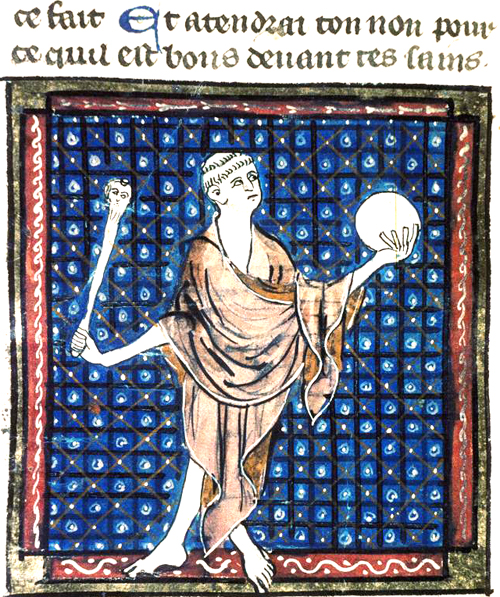 ce fait Et atendrai ton non pour
ce quil est bons deuant tes sains.